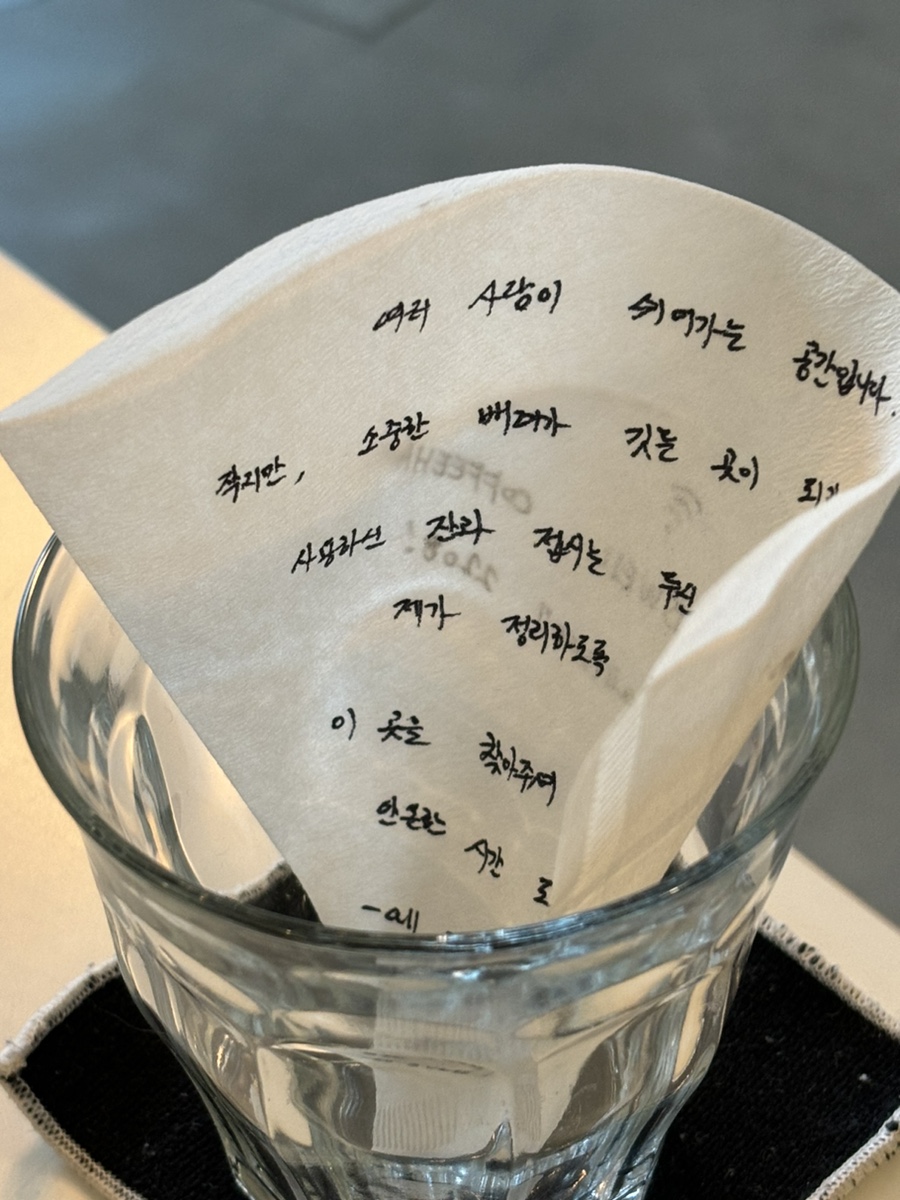 여러 사람이 쉬어가는 공간입니다.
작지만, 소중한 배려가 깃든 곳이 되기
사용하신 잔과 접시는 두신
제가 정리하도록
이 곳을 찾아주셔
안온한 시간 로